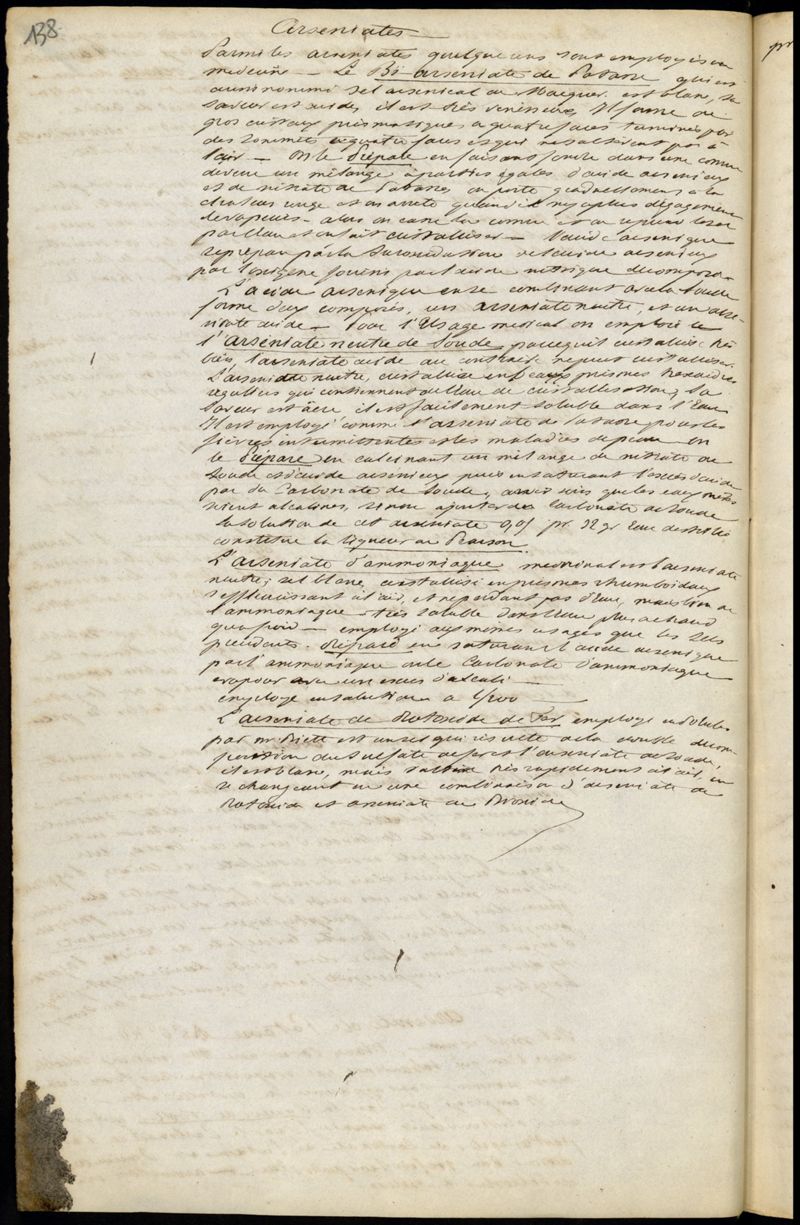 138
Arseniates
Parmi les arseniates quelques uns sont employés en
medecine — Le Bi-arseniate de Potasse qui est
aussi nommé sel arsenical de Macquer est blanc, sa
saveur est acide, il est très veneneux, Il forme de
gros cristaux prismatiques a quatre faces terminés par
des sommets a quatre faces et qui ne s'alterent pas à
l'air — On le Prépare en faisant fondre dans une cornue
de verre un mélange à parties égales d'acide arsenieux
et de nitrate de Potasse, on porte graduellement à la
chaleur rouge et on arrete quand il n'y a plus dégagement
de vapeurs — alors on casse la cornue et on reprend le sel
par l'eau et on fait cristalliser — l'acide arsenique
par l'oxigène fourni par l'acide nitrique decomposé
L'acide arsenique en se combinant avec la soude
forme deux composés, un arseniate neutre, et un arse-
niate acide — Pour l'Usage medical on emploie
l'arséniate neutre de Soude parcequ'il cristallise très
bien, l'arseniate acide au contraire ne peut cristalliser.
L'arseniate neutre, cristallise en beaux prismes hexaedres
reguliers qui contiennent de l'eau de cristallisation, Sa
Saveur est âcre il est facilement soluble dans l'Eau
Il est employé comme l'arseniate de Potasse pour les
fièvres intermittentes et les maladies de peau On
le Prépare en calcinant un mélange de nitrate de
Soude et d'acide arsénieux puis en saturant l'excès d'acide
par du Carbonate de Soude,
soient alcalines, sinon ajouter du Carbonate de Soude
La solution de cet arseniate 0,05 pr 32 gr Eau distillée
constitue la liqueur de Pearson
L'arseniate d'ammoniaque medicinal est l'arseniate
neutre; sel blanc cristallisé en prismes rhomboidaux
s'effleurissant à l'air, et ne perdant pas d'Eau, mais bien de
l'ammoniaque — très soluble dans l'eau plus à chaud
qu'à froid — employé aux mêmes usages que les sels
précédents. Préparé en saturant l'acide arsenique
par l'ammoniaque ou le Carbonate d'ammoniaque
evaporer avec un excès d'alcali —
employé en solution a 1/500
L'arseniate de Protoxide de Fer employé en Pilules
par mr Biett est un sel qui résulte de la double décom-
position du Sulfate de fer et l'arseniate de Soude,
il est blanc, mais s'altère très rapidement à l'air, en
se changeant en une combinaison d'arseniate de
Protoxide et arseniate de Peroxide